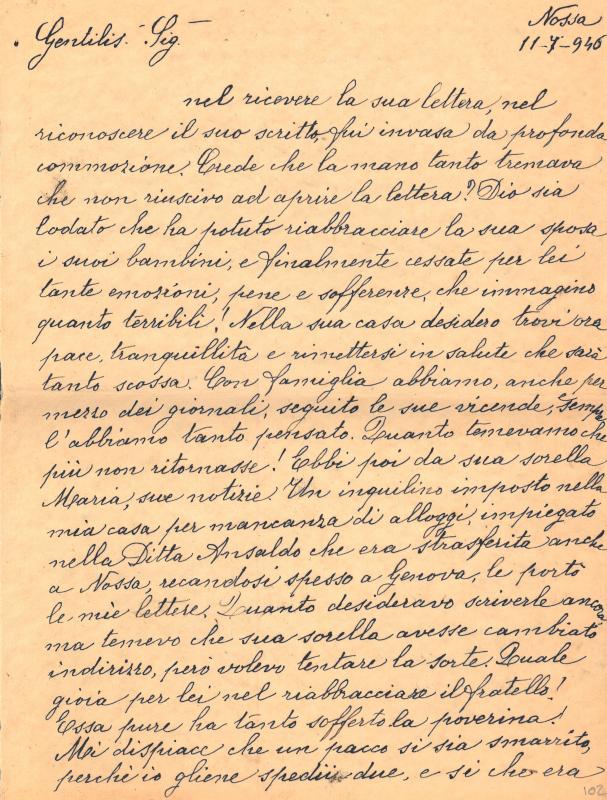 Nossa
Gentilis. Sig.
11-7-946
nel ricevere la sua lettera, nel
riconoscere il suo scritto, fui invasa da profonda
commozione. Crede che la mano tanto tremava
che non riuscivo ad aprire la lettera? Dio sia
lodato che ha potuto riabbracciare la sua sposa
i suoi bambini, e finalmente cessate per lei
tante emozioni, pene e sofferenze, che immagino
quanto terribili! Nella sua casa desidero trovi ora
pace, tranquillità e rimettersi in salute che sarà
tanto scossa. Con famiglia abbiamo, anche per
mezzo dei giornali, seguito le sue vicende, e sempre
l'abbiamo tanto pensato. Quanto temevamo che
più non ritornasse! Ebbi poi da sua sorella
Maria, sue notizie. Un inquilino imposto nella
mia casa per mancanza di alloggi, impiegato
nella Ditta Ansaldo che era strasferita anche
a Nossa, recandosi spesso a Genova, le portò
le mie lettere. Quanto desideravo scriverle ancora
ma temevo che sua sorella avesse cambiato
indirizzo, però volevo tentare la sorte. Quale
gioia per lei nel riabbracciare il fratello!
Essa pure ha tanto sofferto la poverina!
Mi dispiace che un pacco si sia smarrito,
perchè io gliene spedii due, e si che era
102